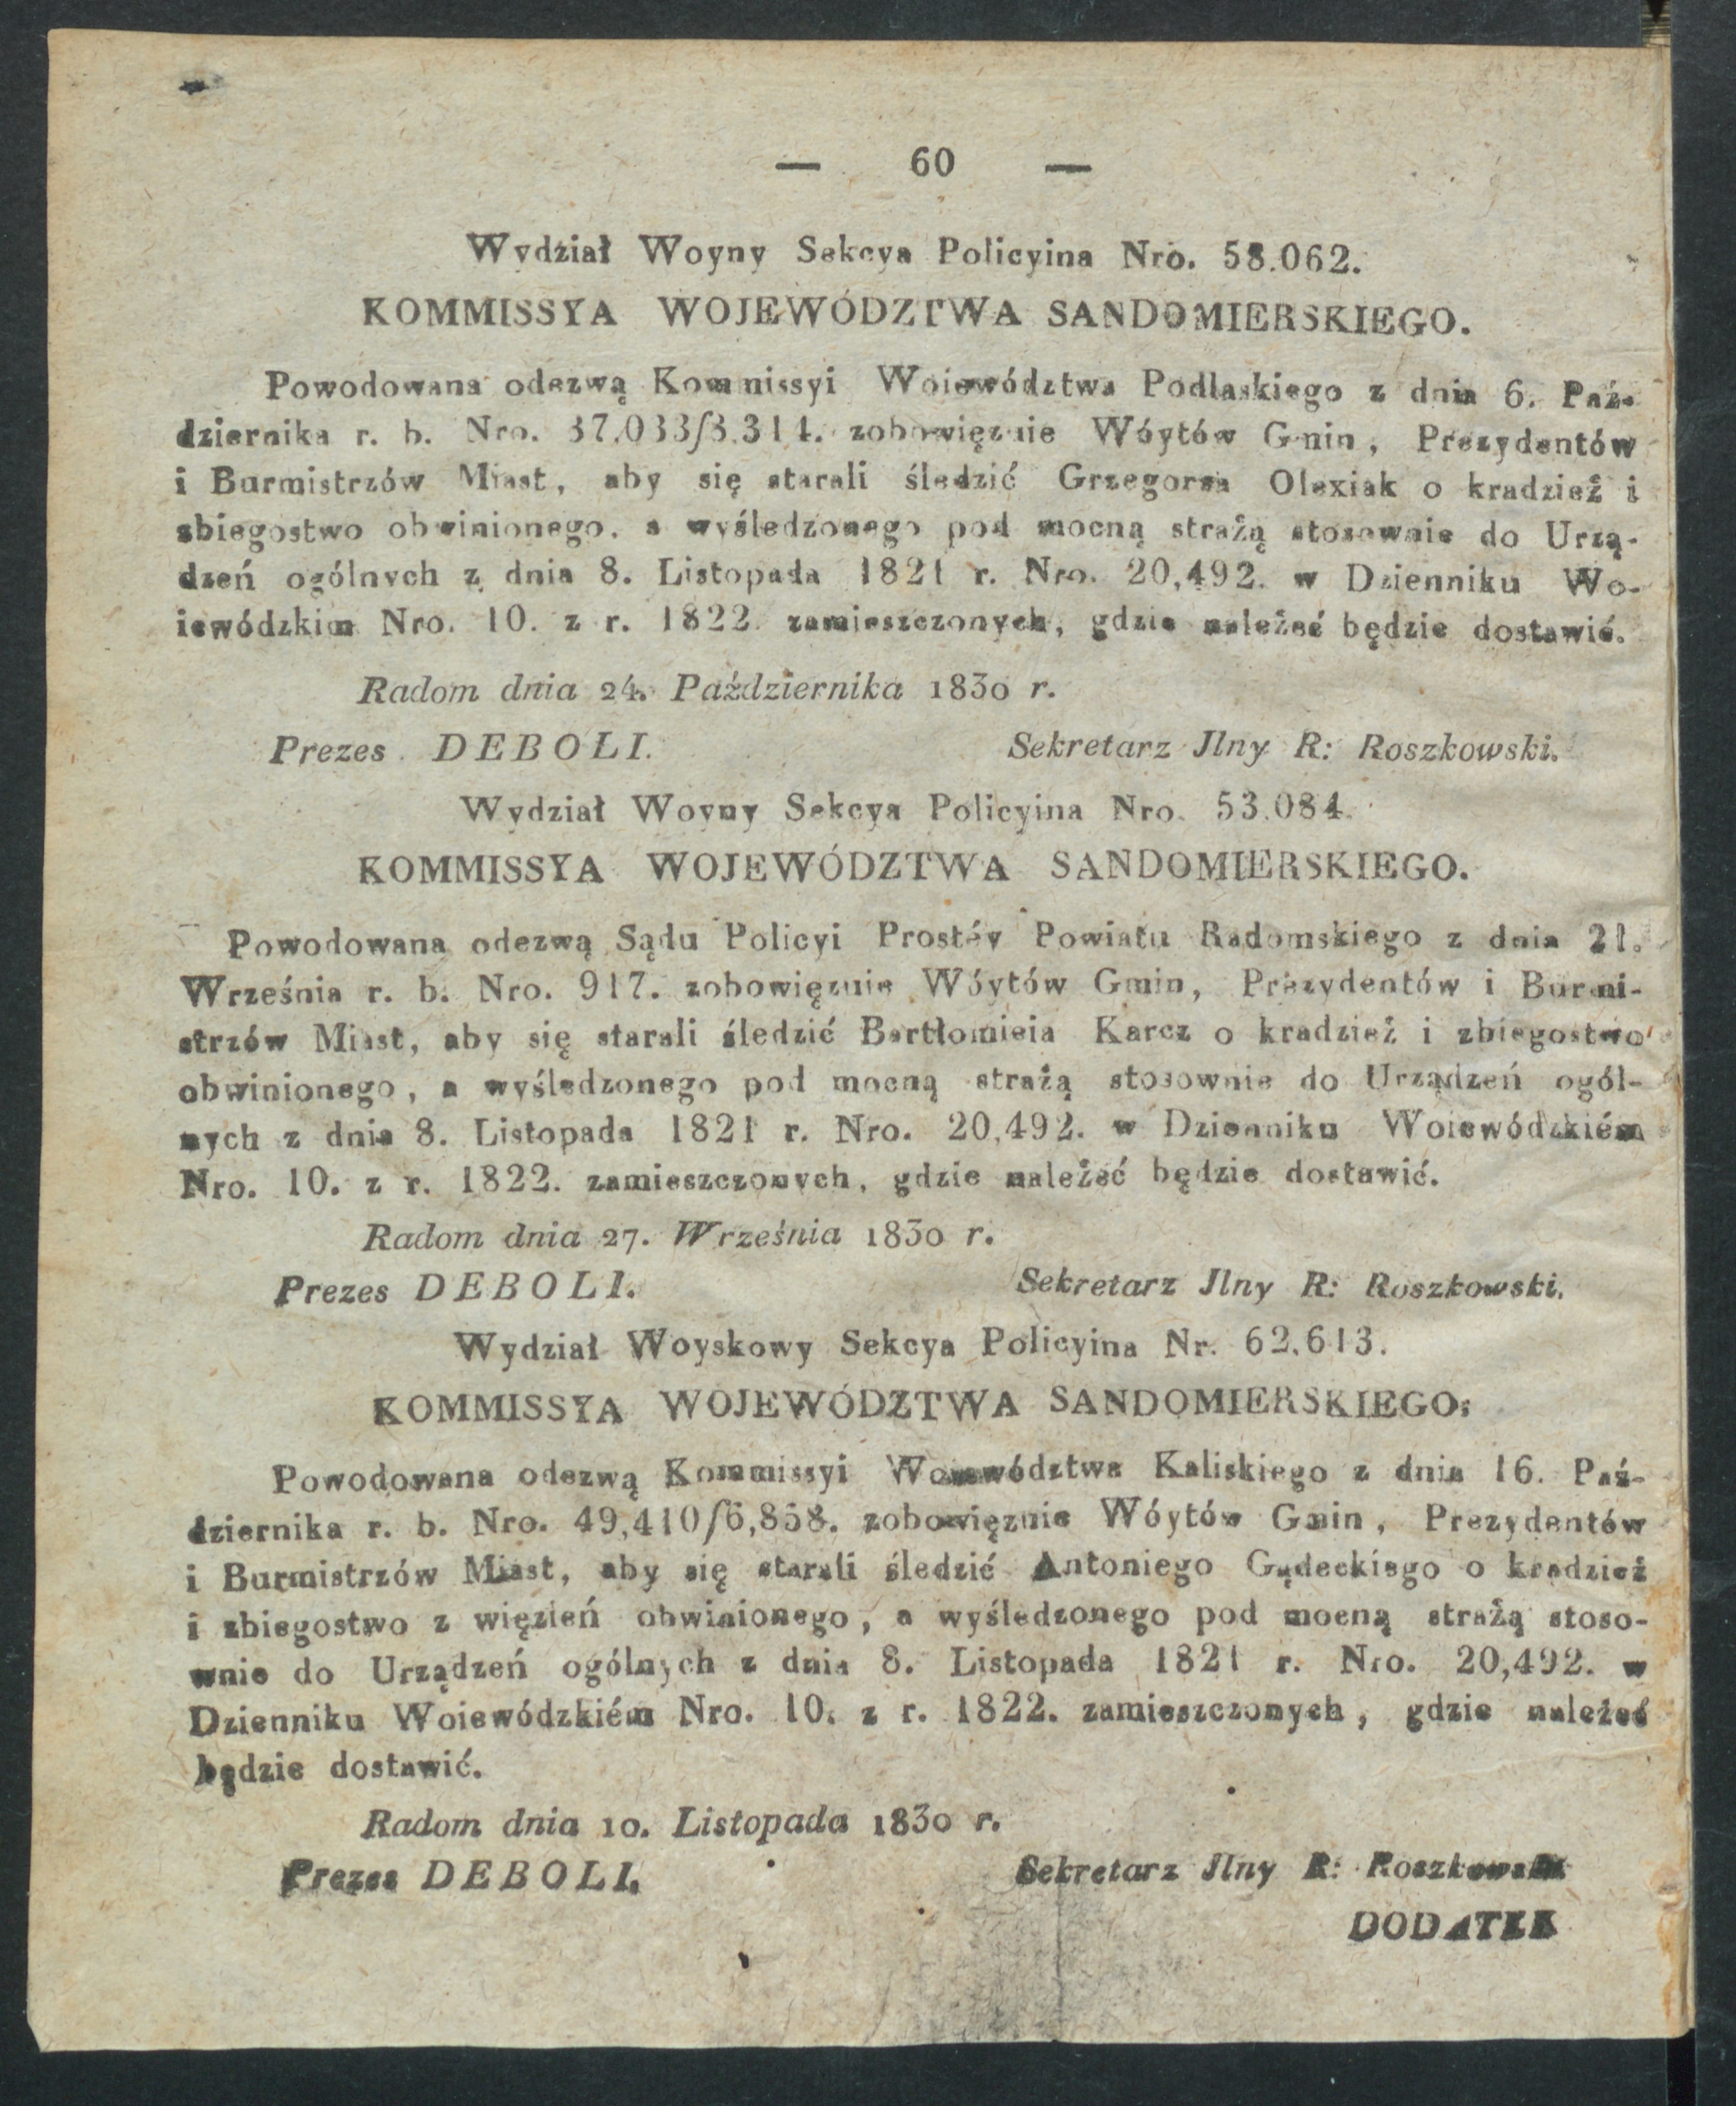 — 60 —
Wydział Woyny Sekcya Policyina Nro. 58.062.
KOMMISSYA WOJEWÓDZTWA SANDOMIERSKIEGO.
Powodowana odezwą Kommissyi Woiewództwa Podlaskiego z dnia 6. Paź-
dziernika r. b. Nro. 37,033/3.314. zobowięznie Wóytów Gmin, Prezydentów
i Burmistrzów Miast, aby się starali śledzić Grzegorza Olexiak o kradzież i
zbiegostwo obwinionego, a wyśledzonego pod mocną strażą stosownie do Urzą-
dzeń ogólnych z dnia 8. Listopada 1821 r. Nro. 20,492. w Dzienniku Wo-
iewódzkim Nro. 10. z r. 1822. zamieszczonych, gdzie należeć będzie dostawić.
Radom dnia 24. Października 1830 r.
Prezes DEBOLI. Sekretarz Jlny R: Roszkowski.
Wydział Woyny Sekcya Policyina Nro. 53.084.
KOMMISSYA WOJEWÓDZTWA SANDOMIERSKIEGO.
Powodowana odezwą Sądu Policyi Prostéy Powiatu Radomskiego z dnia 21.
Września r. b. Nro. 917. zobowięznie Wóytów Gmin, Prezydentów i Burmi-
strzów Miast, aby się starali śledzić Bartłomieia Karcz o kradzież i zbiegostwo
obwinionego, a wyśledzonego pod mocną strażą stosownie do Urządzeń ogól-
nych z dnia 8. Listopada 1821 r. Nro. 20,492. w Dzienniku Woiewódzkiém
Nro. 10. z r. 1822. zamieszczonych, gdzie należeć będzie dostawić.
Radom dnia 27. Września 1830 r.
Prezes DEBOLI. Sekretarz Jlny R: Roszkowski.
Wydział Woyskowy Sekcya Policyina Nr. 62.613.
KOMMISSYA WOJEWÓDZTWA SANDOMIERSKIEGO.
Powodowana odezwą Kommissyi Woiewództwa Kaliskiego z dnia 16. Paź-
dziernika r. b. Nro. 49,410/6,858. zobowięznie Wóytów Gmin, Prezydentów
i Burmistrzów Miast, aby się starali śledzić Antoniego Gądeckiego o kradzież
i zbiegostwo z więzień obwinionego, a wyśledzonego pod mocną strażą stoso-
wnie do Urządzeń ogólnych z dnia 8. Listopada 1821 r. Nro. 20,492. w
Dzienniku Woiewódzkiém Nro. 10. z r. 1822. zamieszczonych, gdzie należeć
będzie dostawić.
Radom dnia 10. Listopada 1830 r.
Prezes DEBOLI. Sekretarz Jlny R: Roszkowski
DODATEK